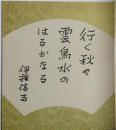 行く秋や
雲烏水の
はるかなる
伊藤信吉